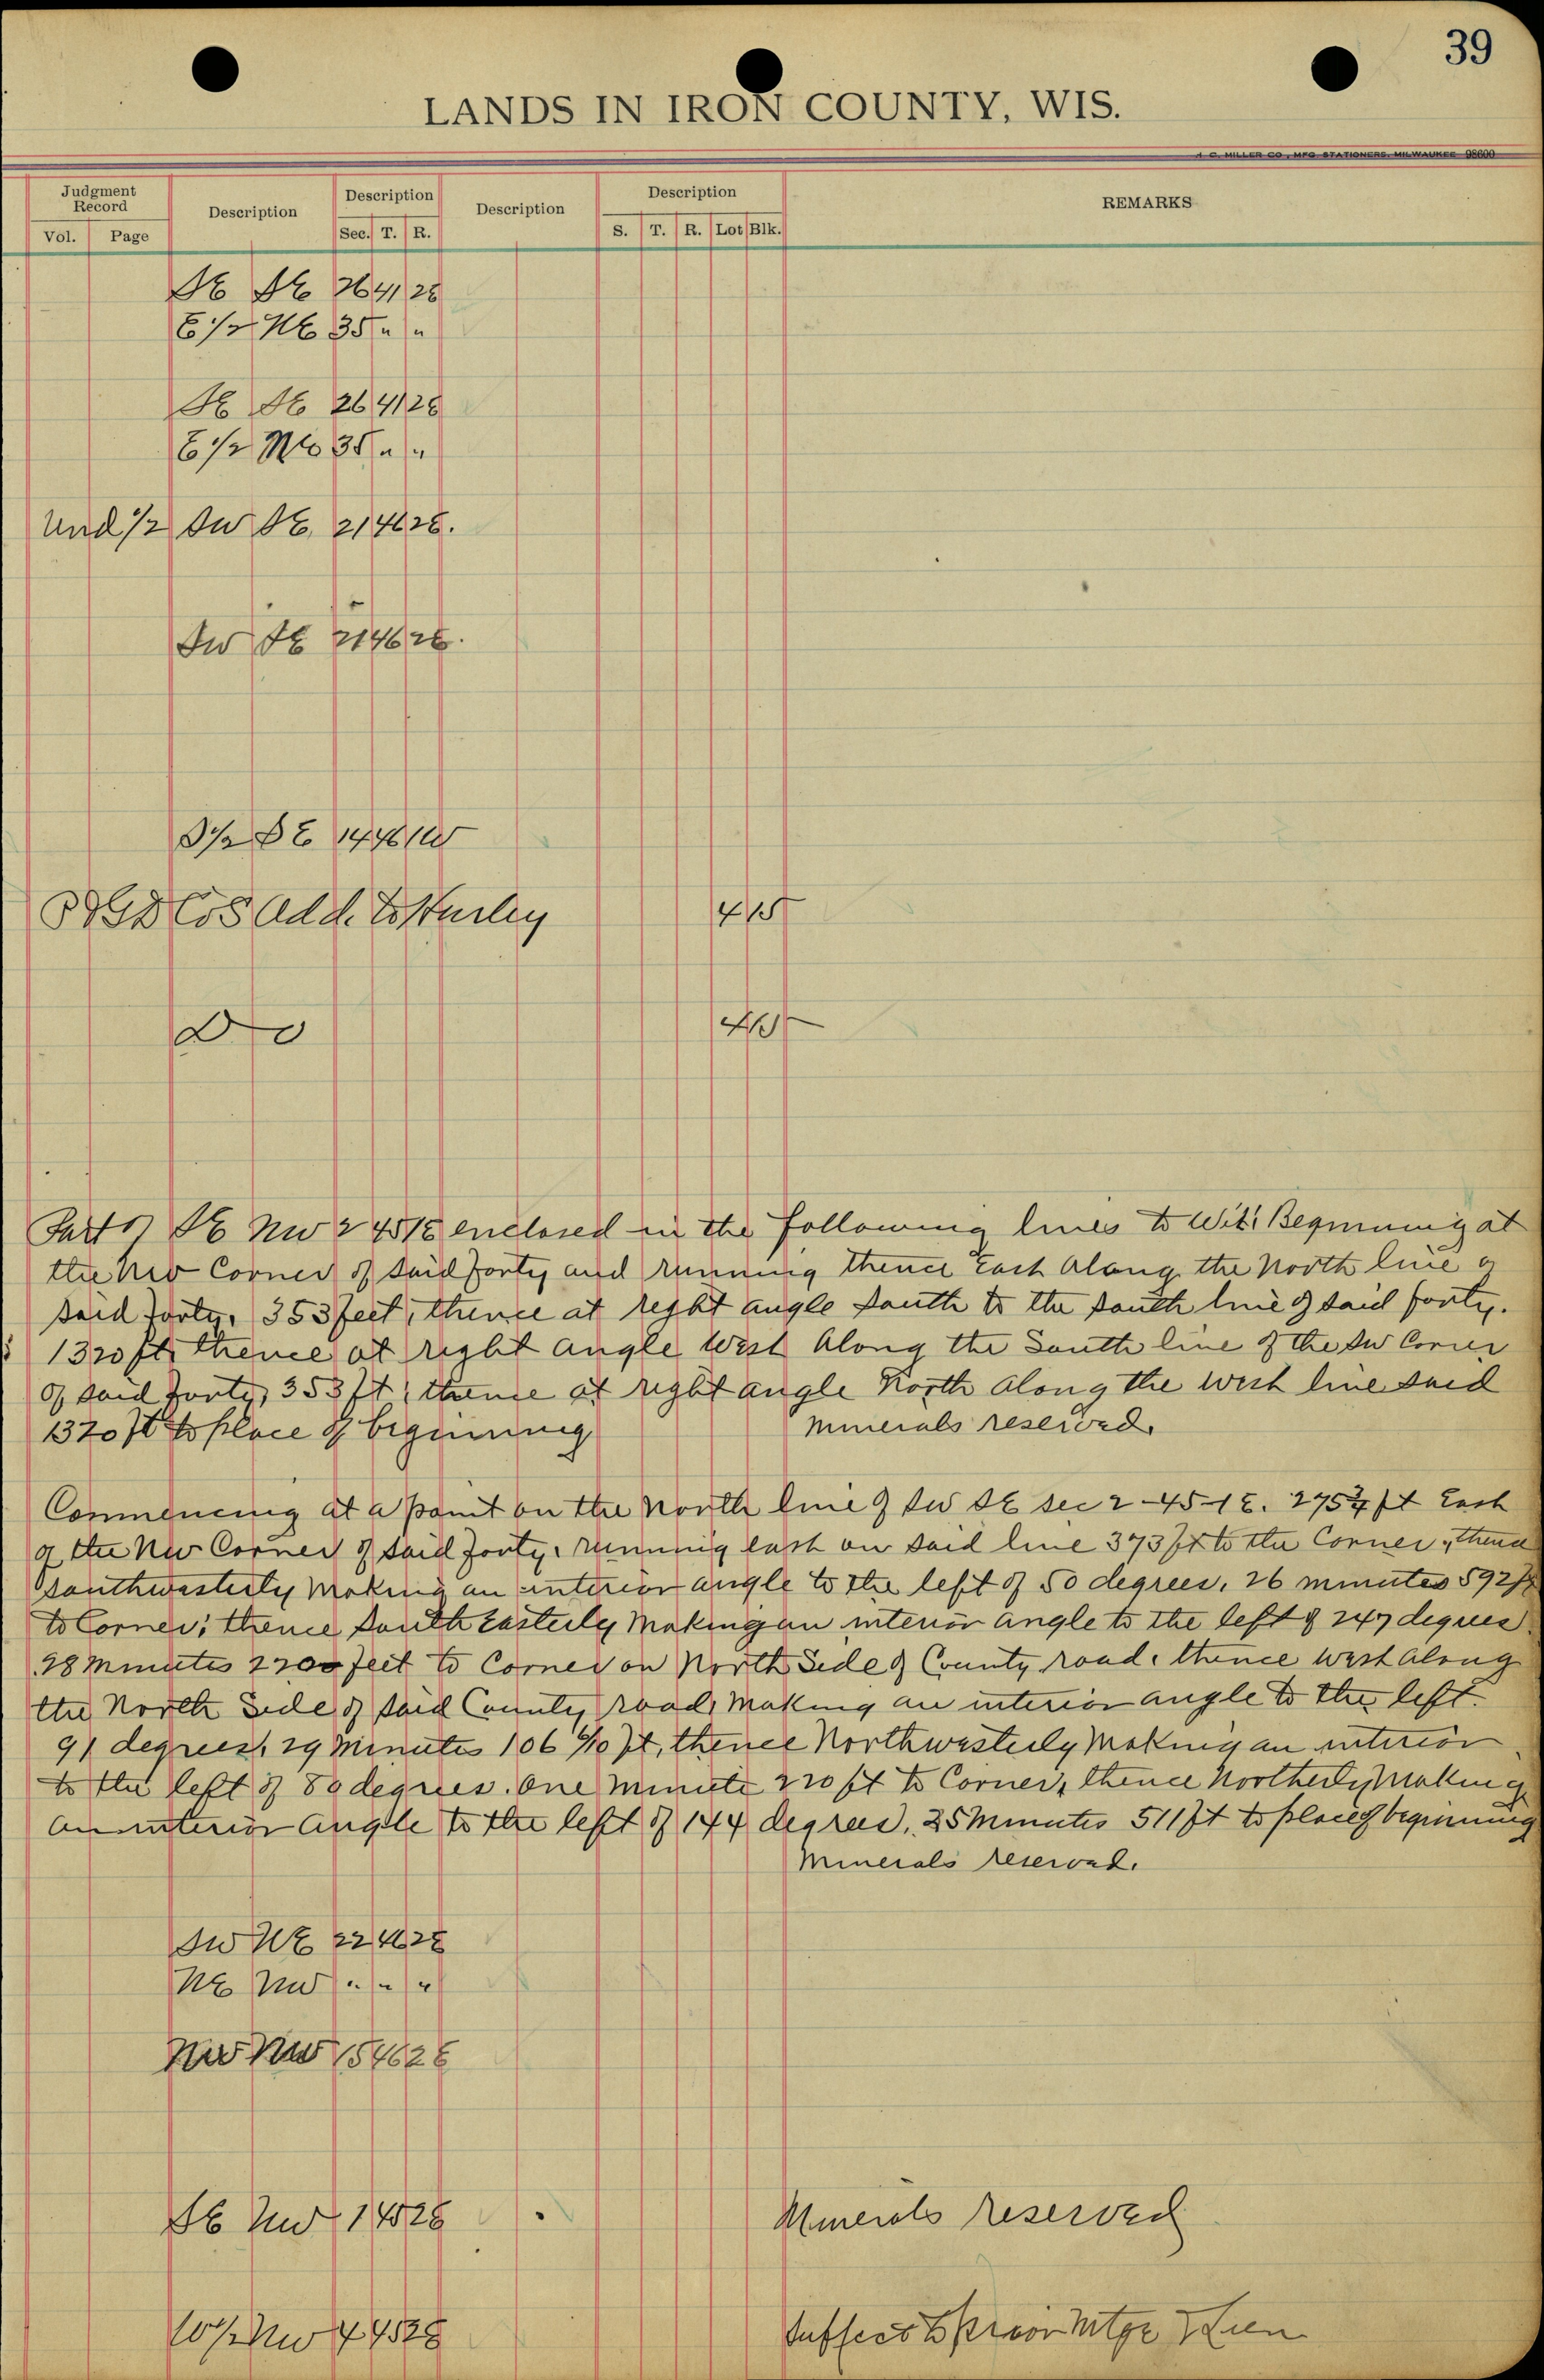 39
LANDS IN IRON COUNTY, WIS.
J. C. MILLER CO., MFG STATIONERS, MILWAUKEE 98600
Judgment Record
Vol. Page
Description
Description
Sec. T. R.
Description
Description
S. T. R. Lot Blk.
REMARKS
SE SE 26 41 2E
E 1/2 NE 35 " "
SE SE 26 41 2E
E 1/2 NE 35 " "
Und 1/2 SW SE 21 46 2E.
SW SE 21 46 2E.
SE 14 46 1W
Add. to Hurley 4 15
Do
Parts SE NW 2 45 1E enclosed in the following lines to Wit: Beginning at
the NW Corner of said forty and running thence East along the North line of
said forty, 353 feet, thence at right angle South to the South line of said forty.
1320 ft, thence at right angle West along the South line of the SW Corner
of said forty, 353 ft, thence at right angle North along the West line said
1320 ft to place of beginning Minerals reserved.
Commencing at a point on the North line of SW SE sec 2-45-1E. 275 3/4 ft East
of the NW Corner of said forty, running East on said line 373 ft to the Corner, thence
Southwesterly Making an interior angle to the left of 50 degrees, 26 minutes 592 ft
to Corner; thence South Easterly Making an interior angle to the left of 247 degrees
28 Minutes feet to Corner on North Side of County road, thence West along
the North Side of said County road, Making an interior angle to the left
91 degrees, 29 Minutes 106 ft, thence Northwesterly Making an interior
to the left of degrees. One Minute 220 ft to Corner, thence Northerly Making
an interior Angle to the left of 144 degrees, 25 Minutes 511 ft to place of beginning
Minerals reserved.
SW NE 22 46 2E
NE NW " " "
NW NW 15 46 2E
SE NW 1 45 2E Minerals reserved
NW 4 45 2E Subject to prior Mtge Lien